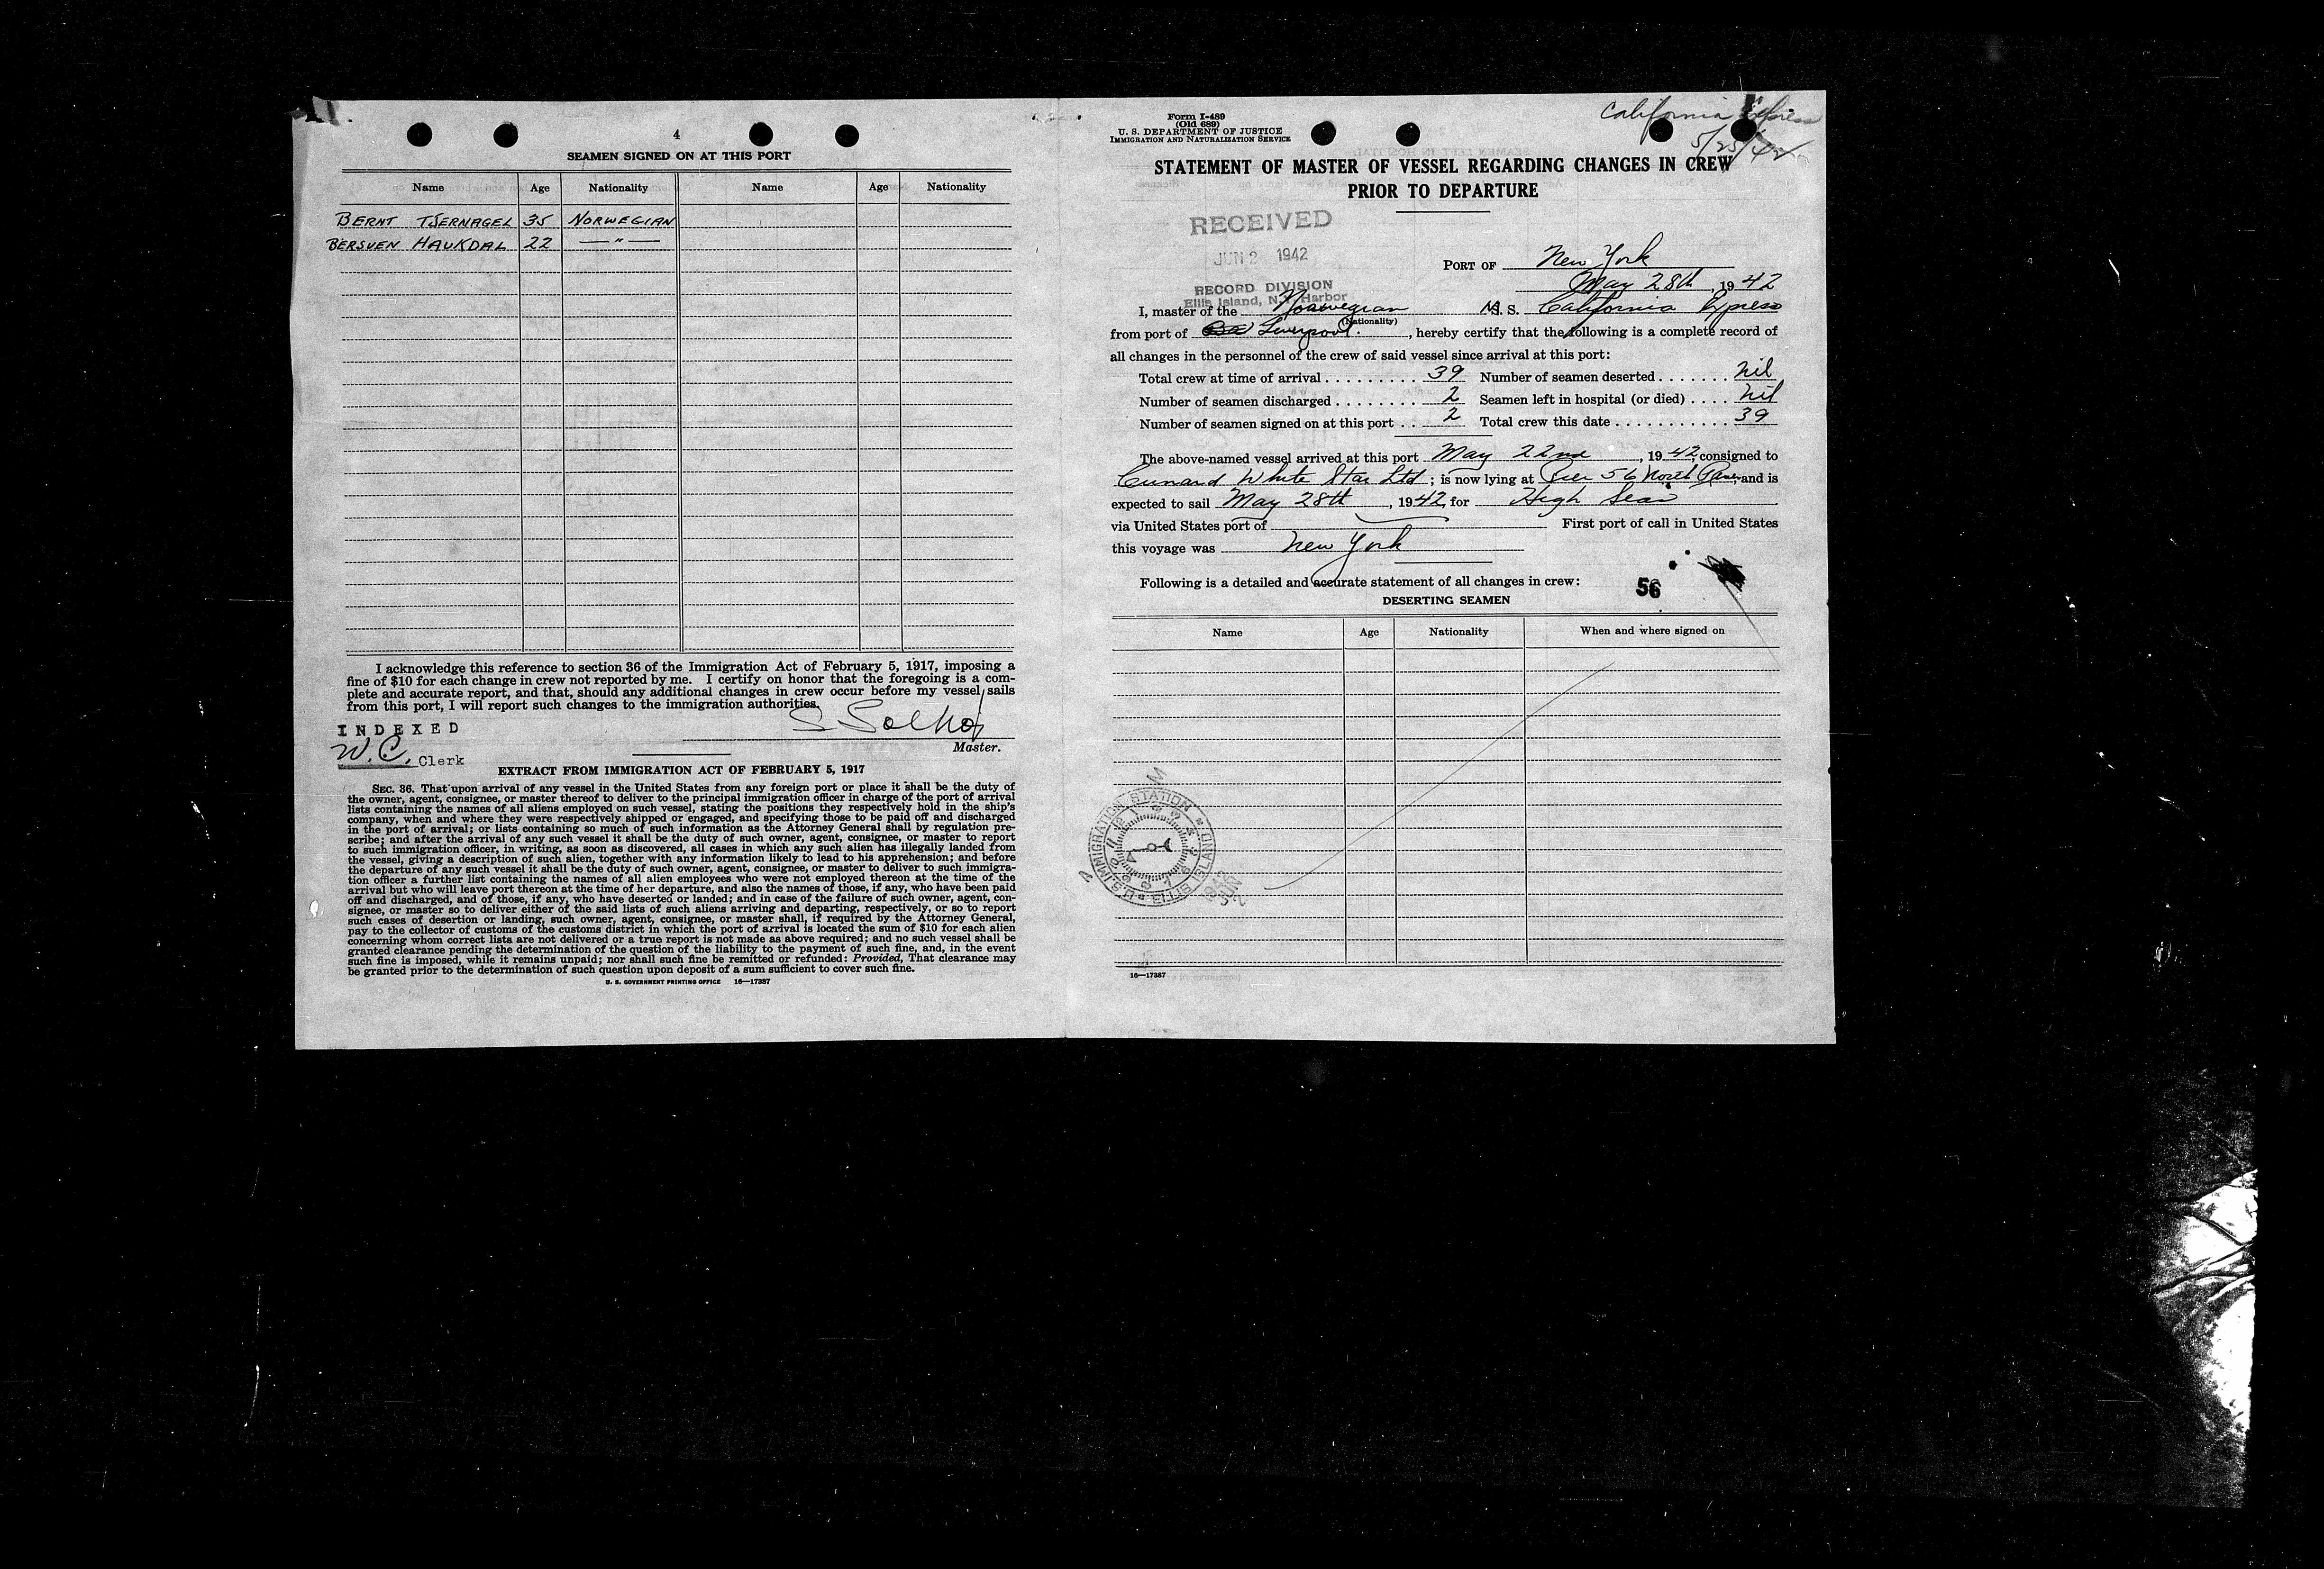 4
SEAMEN SIGNED ON AT THIS PORT
Name Age Nationality Name Age Nationality
BERNT TJERNAGEL 35 NORWEGIAN
BERSVEN HAUKDAL 22 — " —
I acknowledge this reference to section 36 of the Immigration Act of February 5, 1917, imposing a
fine of $10 for each change in crew not reported by me. I certify on honor that the foregoing is a com-
plete and accurate report, and that, should any additional changes in crew occur before my vessel sails
from this port, I will report such changes to the immigration authorities.
INDEXED
W.C. Clerk
Master.
EXTRACT FROM IMMIGRATION ACT OF FEBRUARY 5, 1917
SEC. 36. That upon arrival of any vessel in the United States from any foreign port or place it shall be the duty of
the owner, agent, consignee, or master thereof to deliver to the principal immigration officer in charge of the port of arrival
lists containing the names of all aliens employed on such vessel, stating the positions they respectively hold in the ship's
company, when and where they were respectively shipped or engaged, and specifying those to be paid off and discharged
in the port of arrival; or lists containing so much of such information as the Attorney General shall by regulation pre-
scribe; and after the arrival of any such vessel it shall be the duty of such owner, agent, consignee, or master to report
to such immigration officer, in writing, as soon as discovered, all cases in which any such alien has illegally landed from
the vessel, giving a description of such alien, together with any information likely to lead to his apprehension; and before
the departure of any such vessel it shall be the duty of such owner, agent, consignee, or master to deliver to such immigra-
tion officer a further list containing the names of all alien employees who were not employed thereon at the time of the
arrival but who will leave port thereon at the time of her departure, and also the names of those, if any, who have been paid
off and discharged, and of those, if any, who have deserted or landed; and in case of the failure of such owner, agent, con-
signee, or master so to deliver either of the said lists of such aliens arriving and departing, respectively, or so to report
such cases of desertion or landing, such owner, agent, consignee, or master shall, if required by the Attorney General,
pay to the collector of customs of the customs district in which the port of arrival is located the sum of $10 for each alien
concerning whom correct lists are not delivered or a true report is not made as above required; and no such vessel shall be
granted clearance pending the determination of the question of the liability to the payment of such fine, and, in the event
such fine is imposed, while it remains unpaid; nor shall such fine be remitted or refunded: Provided, That clearance may
be granted prior to the determination of such question upon deposit of a sum sufficient to cover such fine.
U. S. GOVERNMENT PRINTING OFFICE 16—17387
Form I-489
(Old 689)
U. S. DEPARTMENT OF JUSTICE
IMMIGRATION AND NATURALIZATION SERVICE
California Express
5/25/42
STATEMENT OF MASTER OF VESSEL REGARDING CHANGES IN CREW
PRIOR TO DEPARTURE
RECEIVED
JUN 2 1942
RECORD DIVISION
Ellis Island, N.Y. Harbor
PORT OF New York
May 28th, 1942
I, master of the Norwegian M. S. California Express
(Nationality)
from port of Liverpool., hereby certify that the following is a complete record of
all changes in the personnel of the crew of said vessel since arrival at this port:
Total crew at time of arrival . . . . . . . . . 39 Number of seamen deserted . . . . . . . nil
Number of seamen discharged . . . . . . . . 2 Seamen left in hospital (or died) . . . . nil
Number of seamen signed on at this port . . 2 Total crew this date . . . . . . . . . . . 39
The above-named vessel arrived at this port May 22nd, 1942, consigned to
Cunard White Star Ltd; is now lying at Pier 56 North River, and is
expected to sail May 28th, 1942, for High Seas
via United States port of First port of call in United States
this voyage was New York
Following is a detailed and accurate statement of all changes in crew:
56
DESERTING SEAMEN
Name Age Nationality When and where signed on
U.S. IMMIGRATION STATION ELLIS ISLAND
1942 JUN 2
16—17387